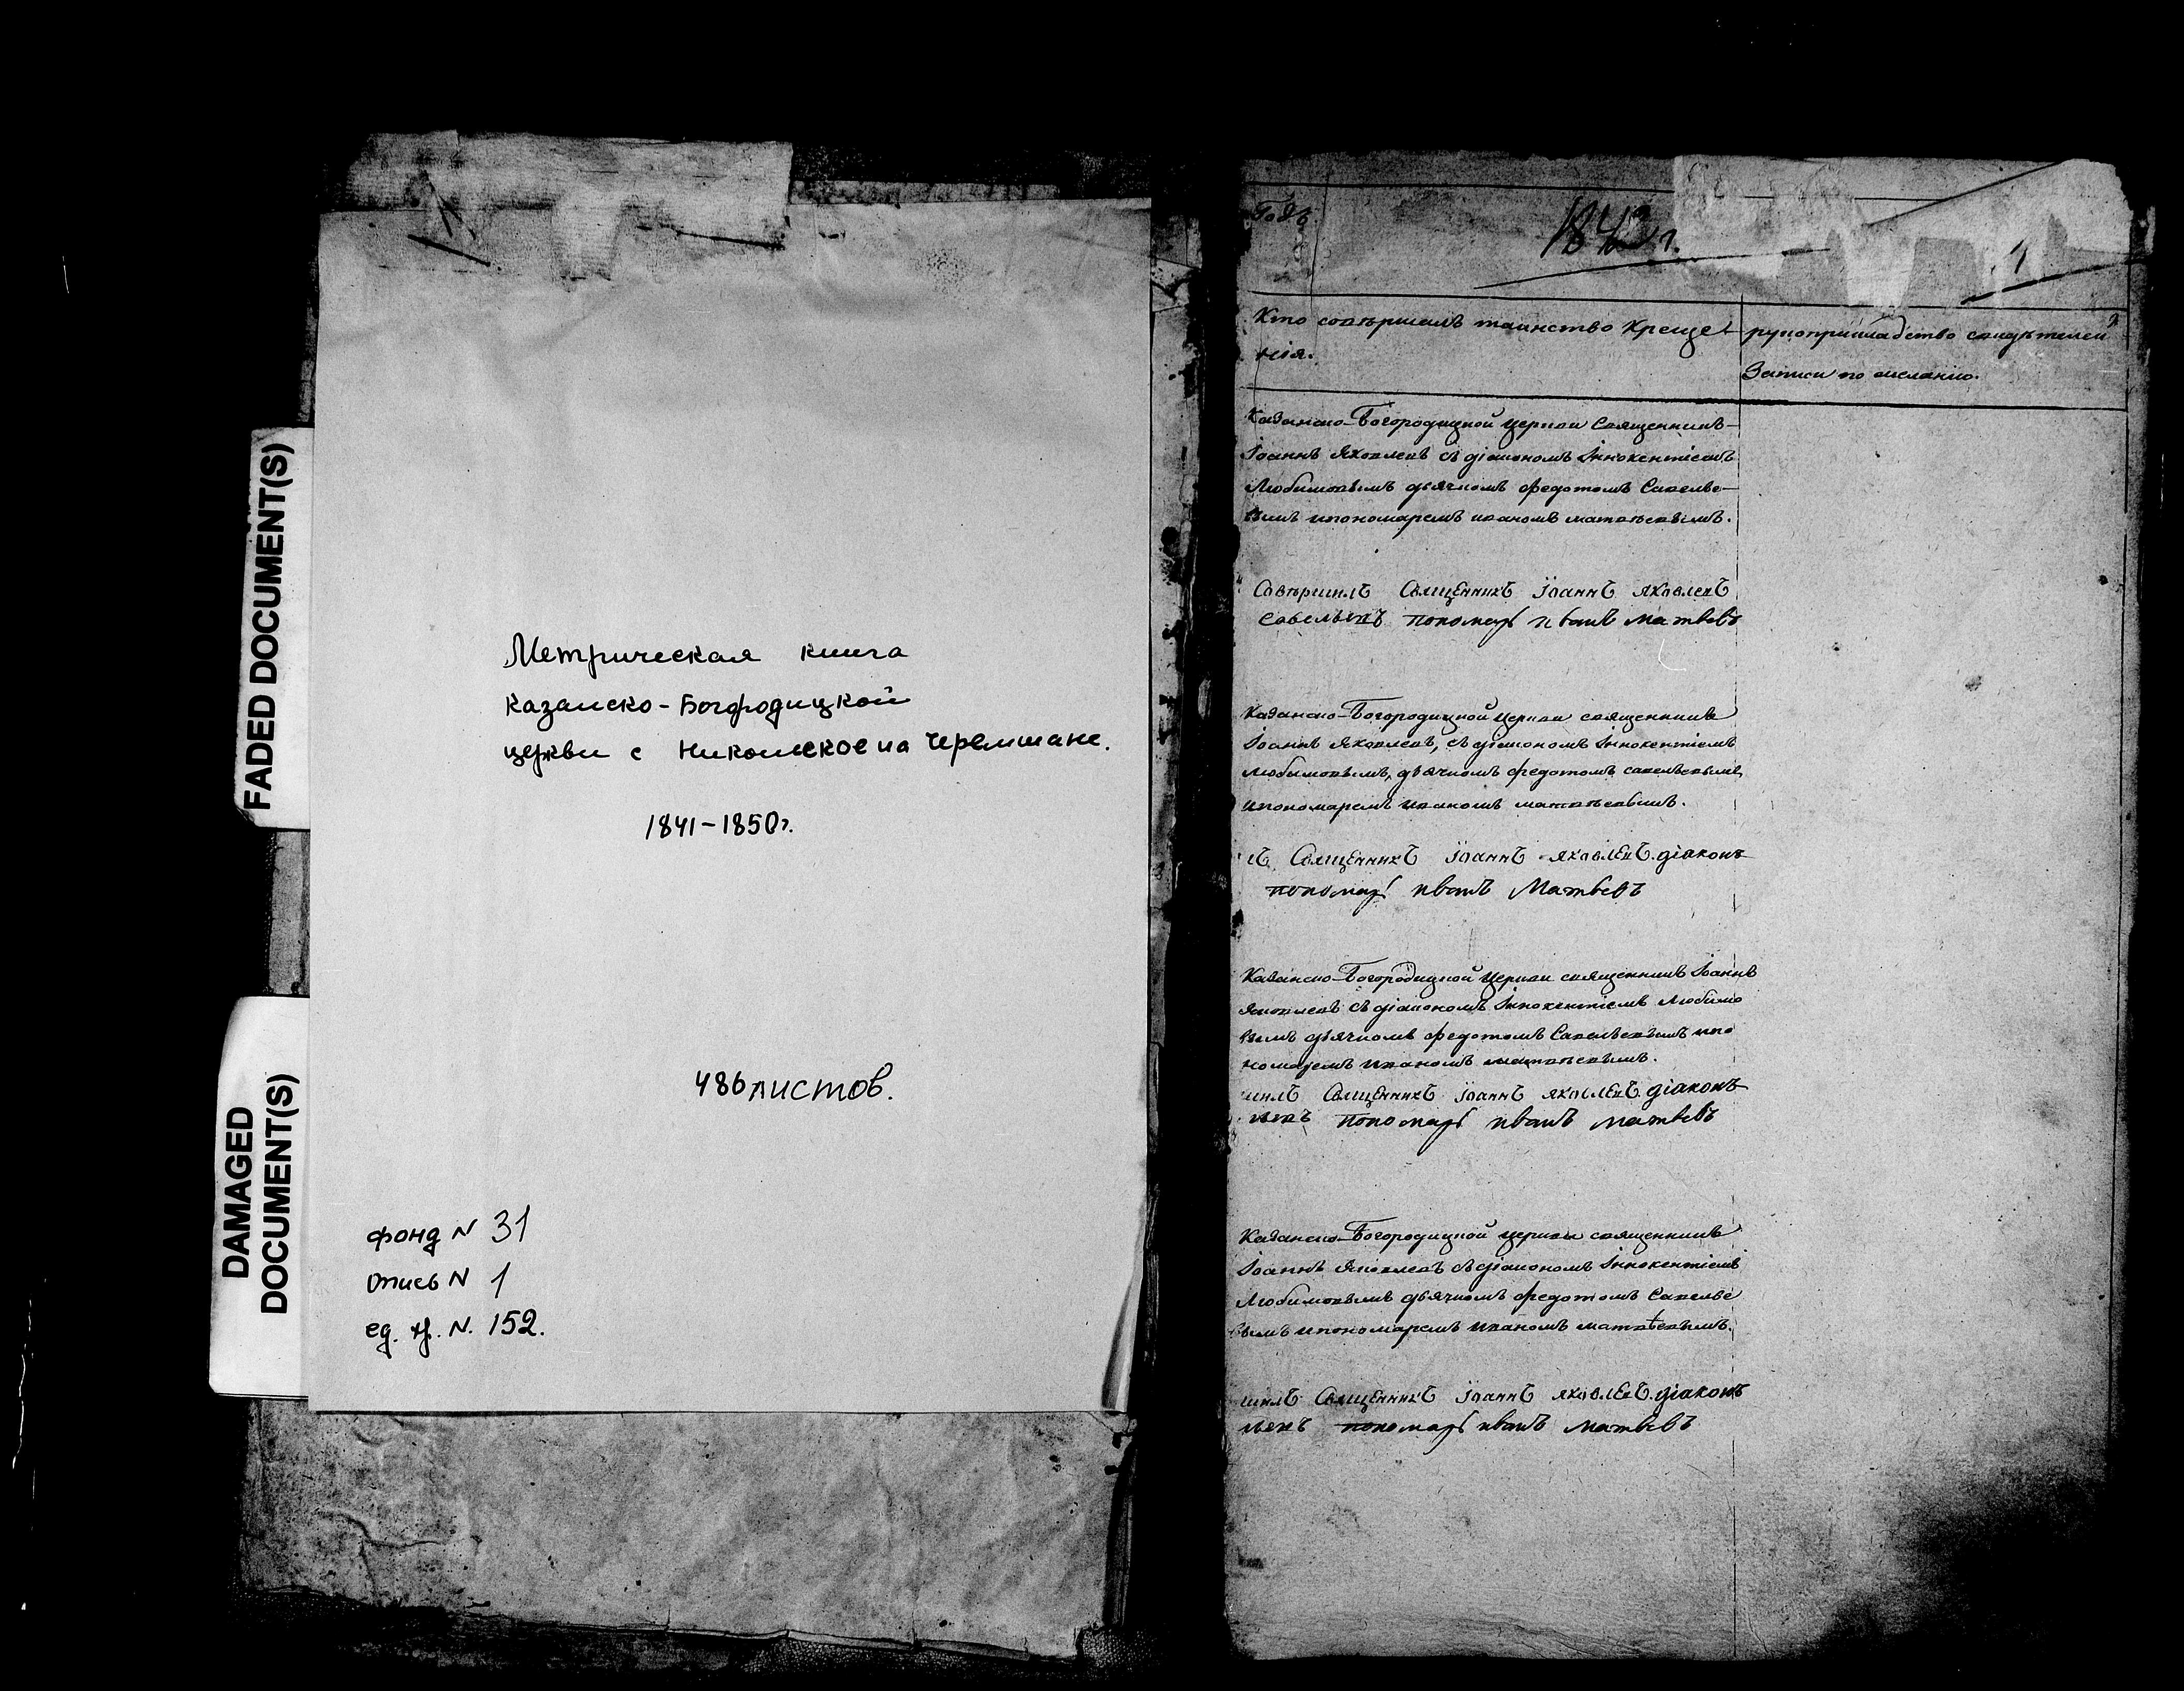 FADED DOCUMENT(S)
DAMAGED
DOCUMENT(S)
Метрическая книга
Казанско-Богородицкой
церкви с Никольское на Черемшане.
1841-1850г.
486 листов.
фонд N 31
опись N 1
ед. хр. N. 152.
Годъ
1842г.
1
Кто совершалъ таинство Креще
нія.
рукоприкладство свидѣтелей
Записи по желанію.
Казанско-Богородицкой церкви Священникъ
Іоаннъ Яковлевъ съ діакономъ Іннокентіемъ
Любимовымъ дьячкомъ Федотомъ Савелье-
вымъ и пономаремъ иваномъ матвѣевымъ.
Совѣршилъ Свящєнникъ Їоаннъ яковлевъ
Савельевъ пономарь иванъ матвевъ
Казанско-Богородицкой церкви священникъ
Іоаннъ Яковлевъ, съ діакономъ Іннокентіемъ
любимовымъ, дьячкомъ федотомъ савельевымъ,
и пономаремъ иваномъ матвѣевымъ.
лъ Свящєнникъ Їоаннъ яковлєвъ. діаконъ
пономарь иванъ Матвевъ
Казанско-Богородицкой церкви священникъ Іоаннъ
Яковлевъ съ діакономъ Іннокентіемъ Любимо
вымъ дьячкомъ федотомъ Савельевымъ и по
номаремъ иваномъ матвѣевымъ.
шилъ Свящєнникъ Їоаннъ яковлєвъ. діаконъ
пономарь иванъ матвевъ
Казанско-Богородицкой церкви священникъ
Іоаннъ Яковлевъ съ діакономъ Іннокентіемъ
Любимовымъ дьячкомъ федотомъ Савелье
вымъ и пономаремъ иваномъ матвѣевымъ.
шилъ Свящєнникъ Їоаннъ яковлєвъ. діаконъ
пономарь иванъ матвевъ